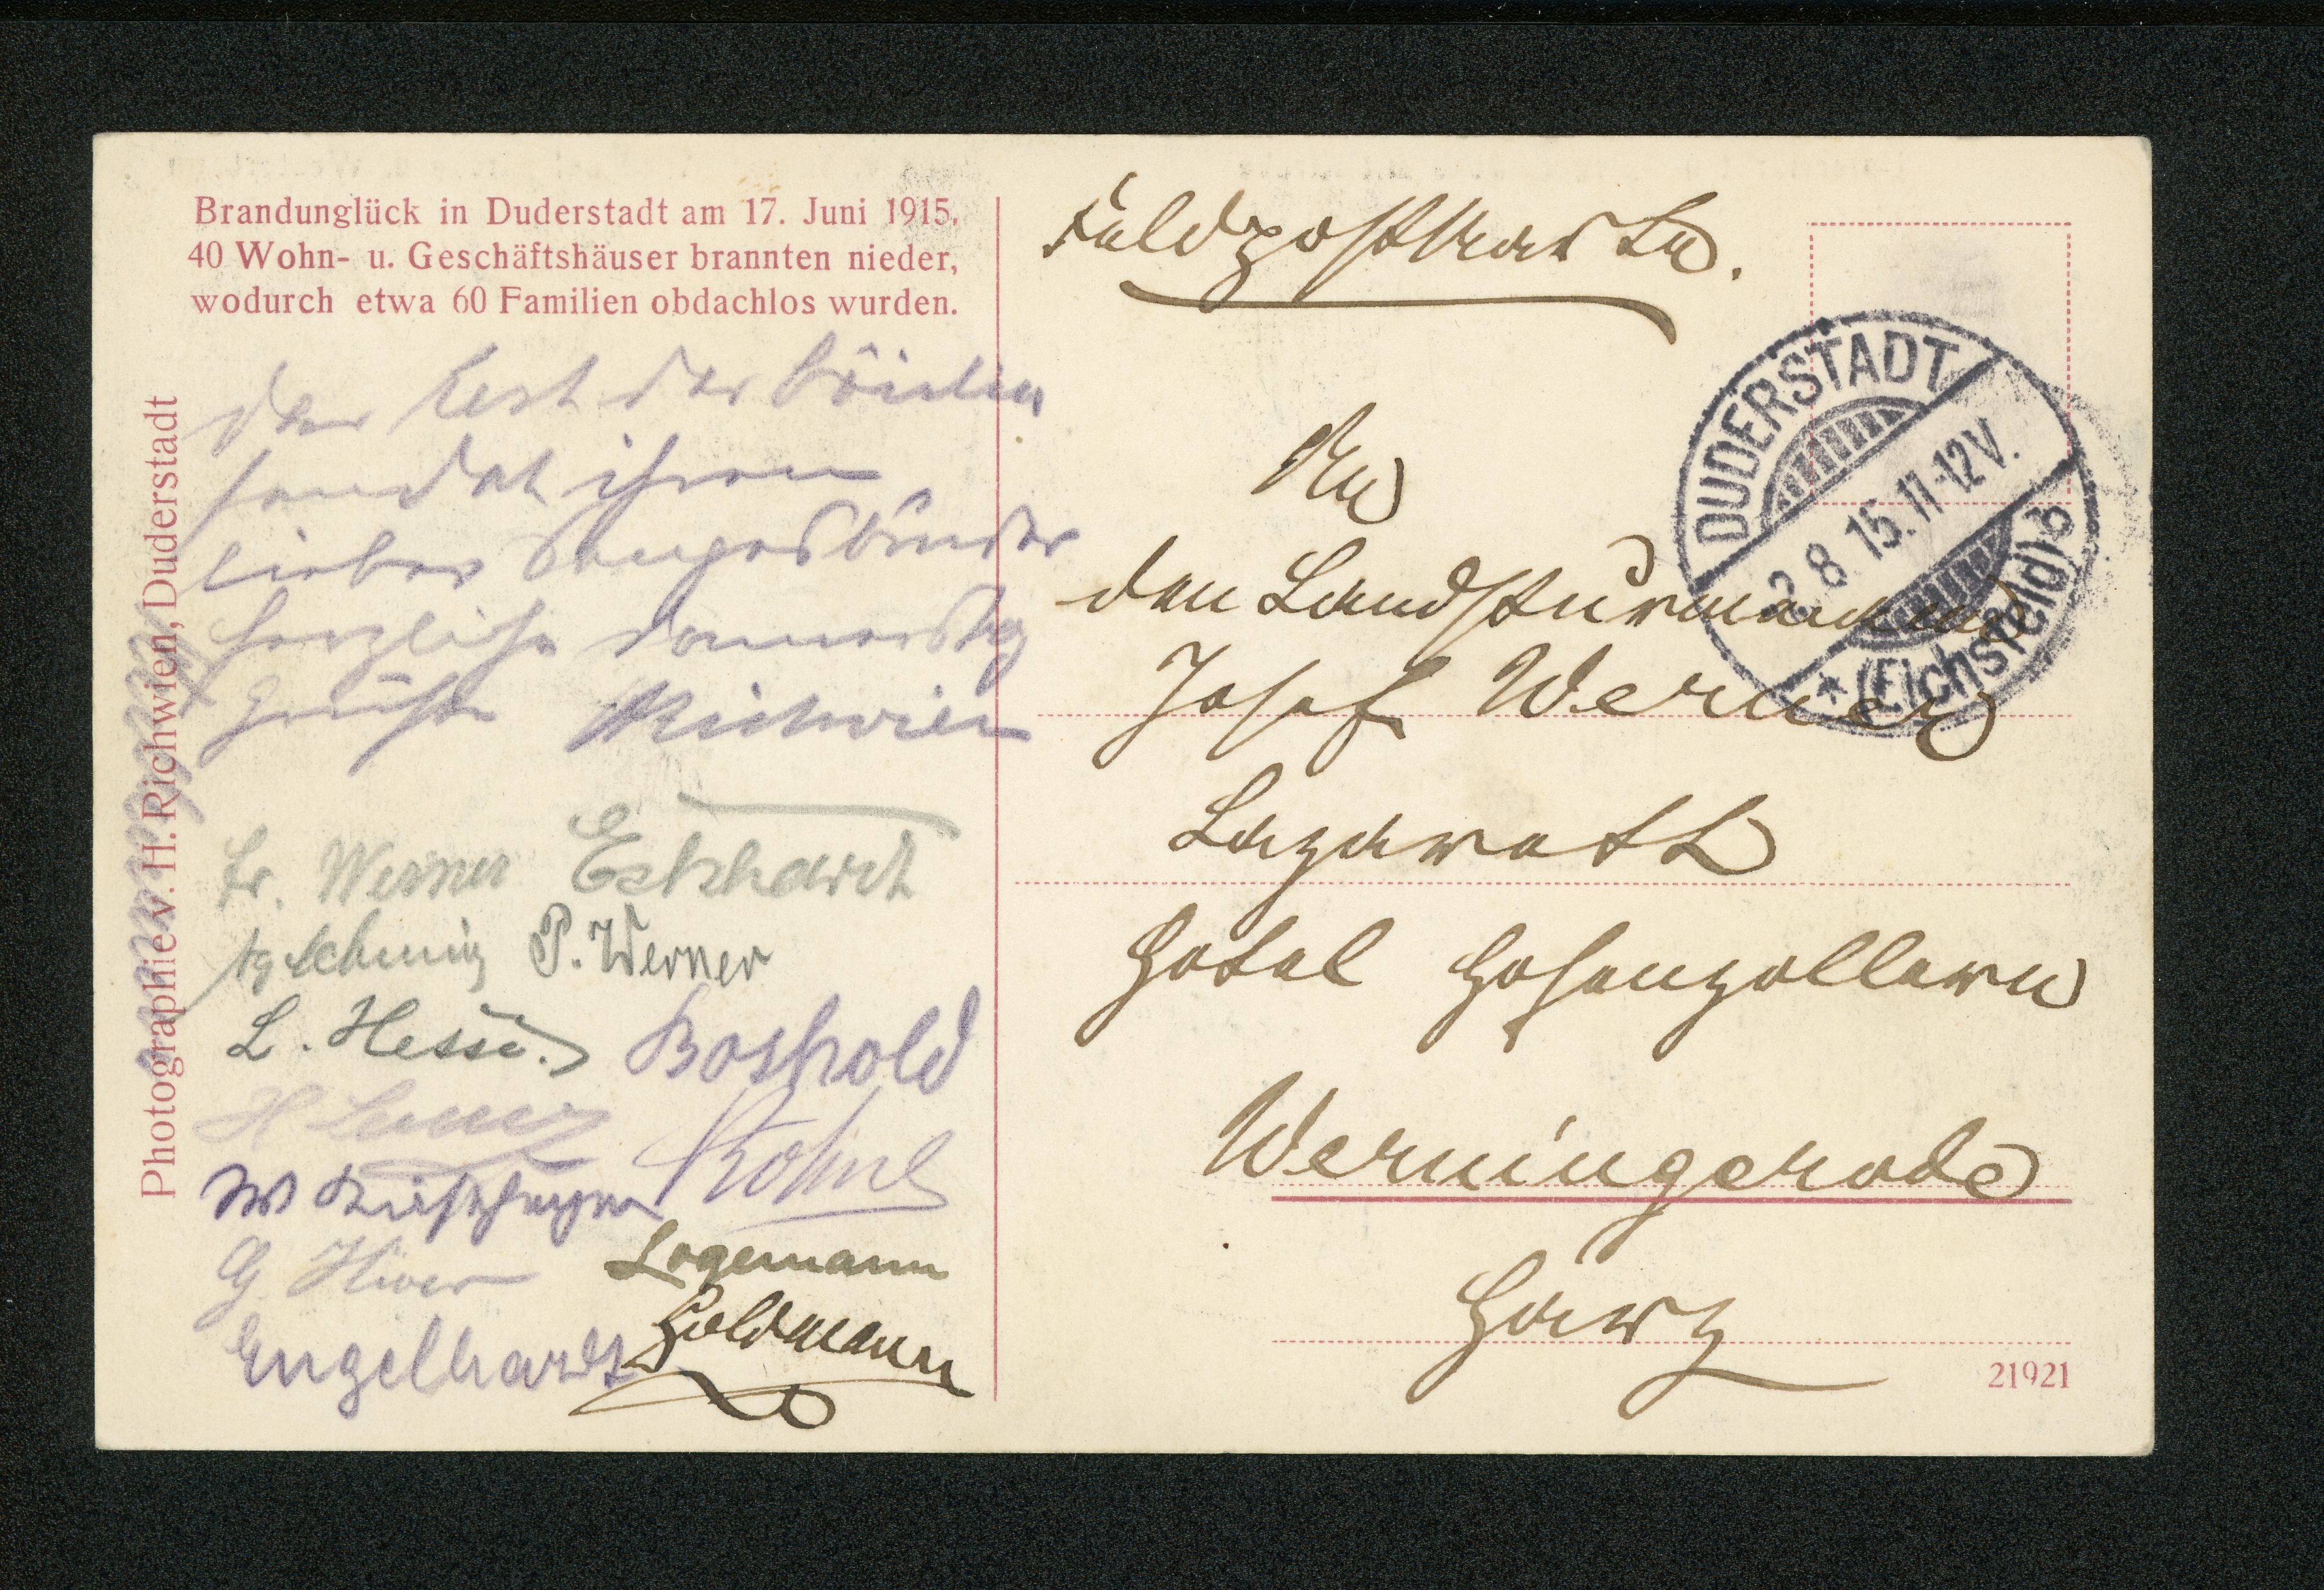 Brandunglück in Duderstadt am 17. Juni 1915,
40 Wohn- u. Geschäftshäuser brannten nieder,
wodurch etwa 60 Familien obdachlos wurden.
Photographie v. H. Richwien, Duderstadt
der Rest der
sendet ihrem
lieben Sangesbruder
herzliche
Grüße Richwien
Fr. Werner Eckhardt
P. Werner
L. Hesse.
Boshold
H
W
Kohne
G
Logemann
Engelhardt
Goldmann
Feldpostkarte.
DUDERSTADT
2 8 15. 11-12V.
* (Eichsfeld)
An
den Landsturmmann
Josef Werner
Lazarett
Hotel Hohenzollern
Werningerode
Harz
21921